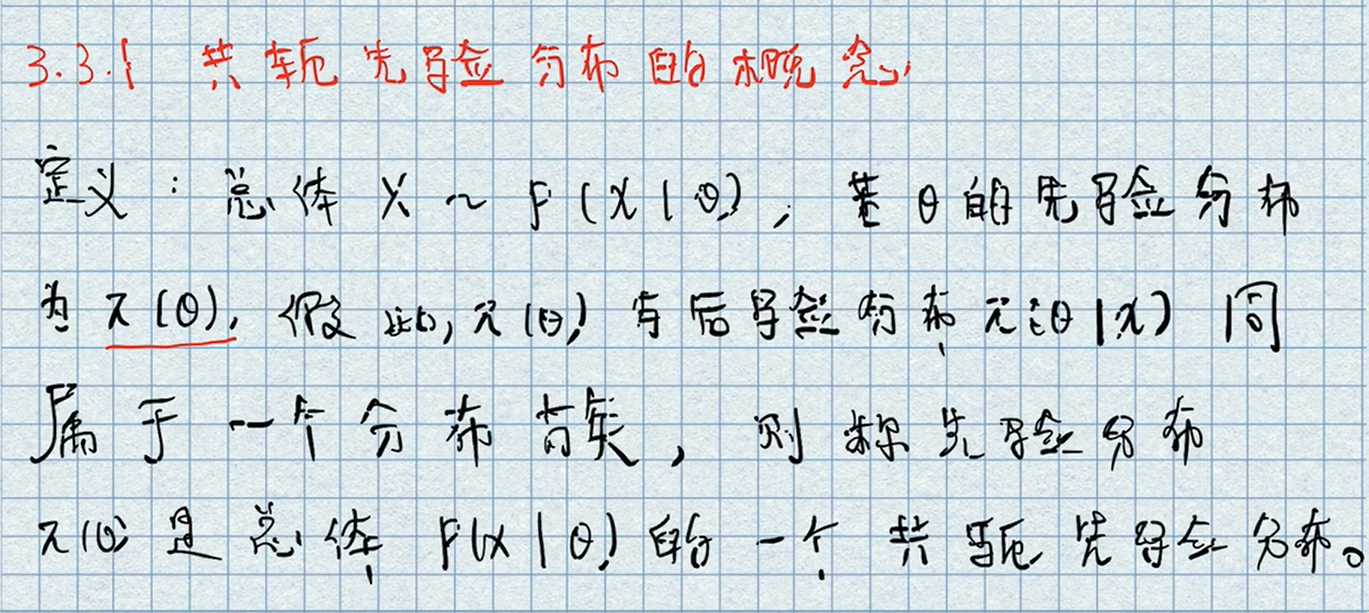 3.3.1 共轭先验分布的概念
定义：总体 X ~ F(X|θ)，若θ的先验分布
为 π(θ), 假设此, π(θ) 与后验分布 π(θ|x) 同
属于一个分布族，则称先验分布
π(θ) 是总体 F(x|θ) 的一个共轭先验分布。